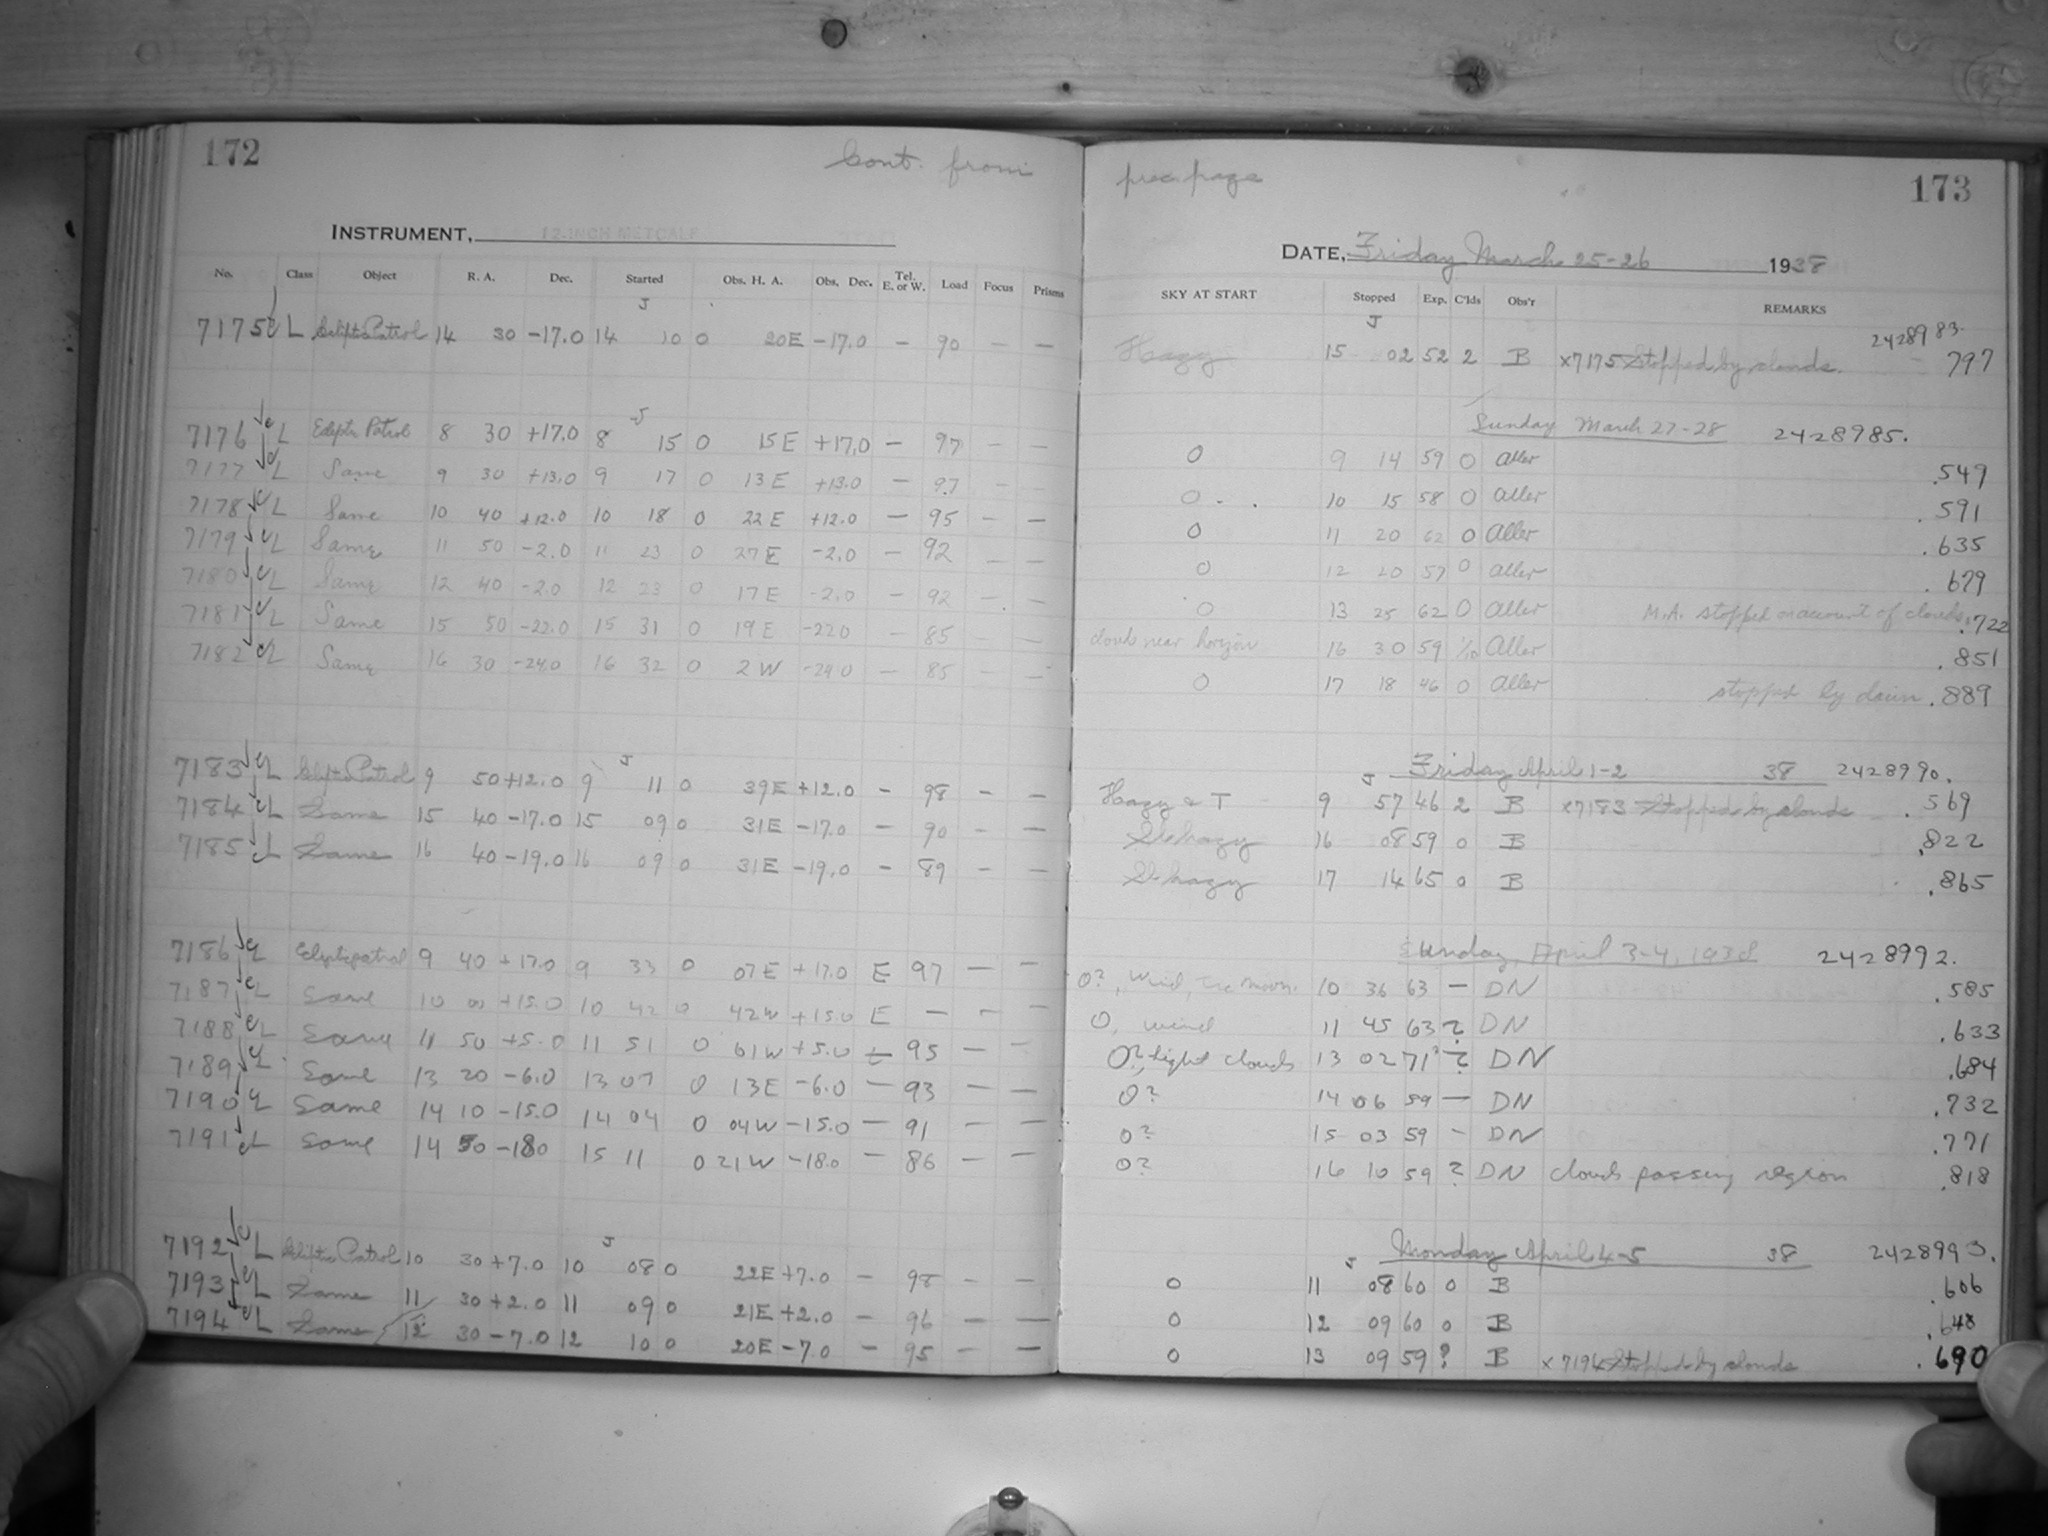 172
Cont. from
INSTRUMENT, 12-INCH METCALF
No. Class Object R. A. Dec. Started Obs. H. A. Obs. Dec. Tel. E. or W. Load Focus Prisms
J
7175 L Ecliptic Patrol 14 30 -17.0 14 10 0 20E -17.0 - 90 - -
J
7176 L Ecliptic Patrol 8 30 +17.0 8 15 0 15E +17.0 - 97 - -
7177 L Same 9 30 +13.0 9 17 0 13E +13.0 - 97 - -
7178 L Same 10 40 +12.0 10 18 0 22E +12.0 - 95 - -
7179 L Same 11 50 -2.0 11 23 0 27E -2.0 - 92 - -
7180 L Same 12 40 -2.0 12 23 0 17E -2.0 - 92 - -
7181 L Same 15 50 -22.0 15 31 0 19E -22.0 - 85 - -
7182 L Same 16 30 -24.0 16 32 0 2W -24.0 - 85 - -
J
7183 L Eclipt. Patrol 9 50 +12.0 9 11 0 39E +12.0 - 98 - -
7184 L Same 15 40 -17.0 15 09 0 31E -17.0 - 90 - -
7185 L Same 16 40 -19.0 16 09 0 31E -19.0 - 89 - -
7186 L Eclipticpatrol 9 40 +17.0 9 33 0 07E +17.0 E 97 - -
7187 L Same 10 00 +15.0 10 42 0 42W +15.0 E - - -
7188 L Same 11 50 +5.0 11 51 0 01W +5.0 E 95 - -
7189 L Same 13 20 -6.0 13 07 0 13E -6.0 - 93 - -
7190 L Same 14 10 -15.0 14 04 0 04W -15.0 - 91 - -
7191 L Same 14 50 -18.0 15 11 0 21W -18.0 - 86 - -
J
7192 L Ecliptic Patrol 10 30 +7.0 10 08 0 22E +7.0 - 98 - -
7193 L Same 11 30 +2.0 11 09 0 21E +2.0 - 96 - -
7194 L Same 12 30 -7.0 12 10 0 20E -7.0 - 95 - -
prec. page
173
DATE, Friday March 25-26 1938
SKY AT START Stopped Exp. C'lds Obs'r REMARKS
J 2428983.
Hazy 15 02 52 2 B x7175 Stopped by clouds. 797
Sunday March 27-28 2428985.
0 9 14 59 0 Aller .547
0 10 15 58 0 Aller .591
0 11 20 62 0 Aller .635
0 12 20 57 0 Aller .679
0 13 25 62 0 Aller M.A. stopped on account of clouds .722
clouds near horizon 16 30 59 1/10 Aller .851
0 17 18 46 0 Aller stopped by dawn .889
J Friday April 1-2 38 2428990.
Hazy & T 9 57 46 2 B x7183 Stopped by clouds .569
Sl. hazy 16 08 59 0 B .822
Sl. hazy 17 14 65 0 B .865
Sunday, April 3-4, 1938 2428992.
0?, Wind, moon. 10 36 63 - DN .585
0, wind 11 45 63 ? DN .633
0?, light clouds 13 02 71 ? DN .684
0? 14 06 59 - DN .732
0? 15 03 59 - DN .771
0? 16 10 59 ? DN clouds passing region .818
J Monday April 4-5 38 2428993.
0 11 08 60 0 B .606
0 12 09 60 0 B .648
0 13 09 59 ? B x7194 Stopped by clouds .690